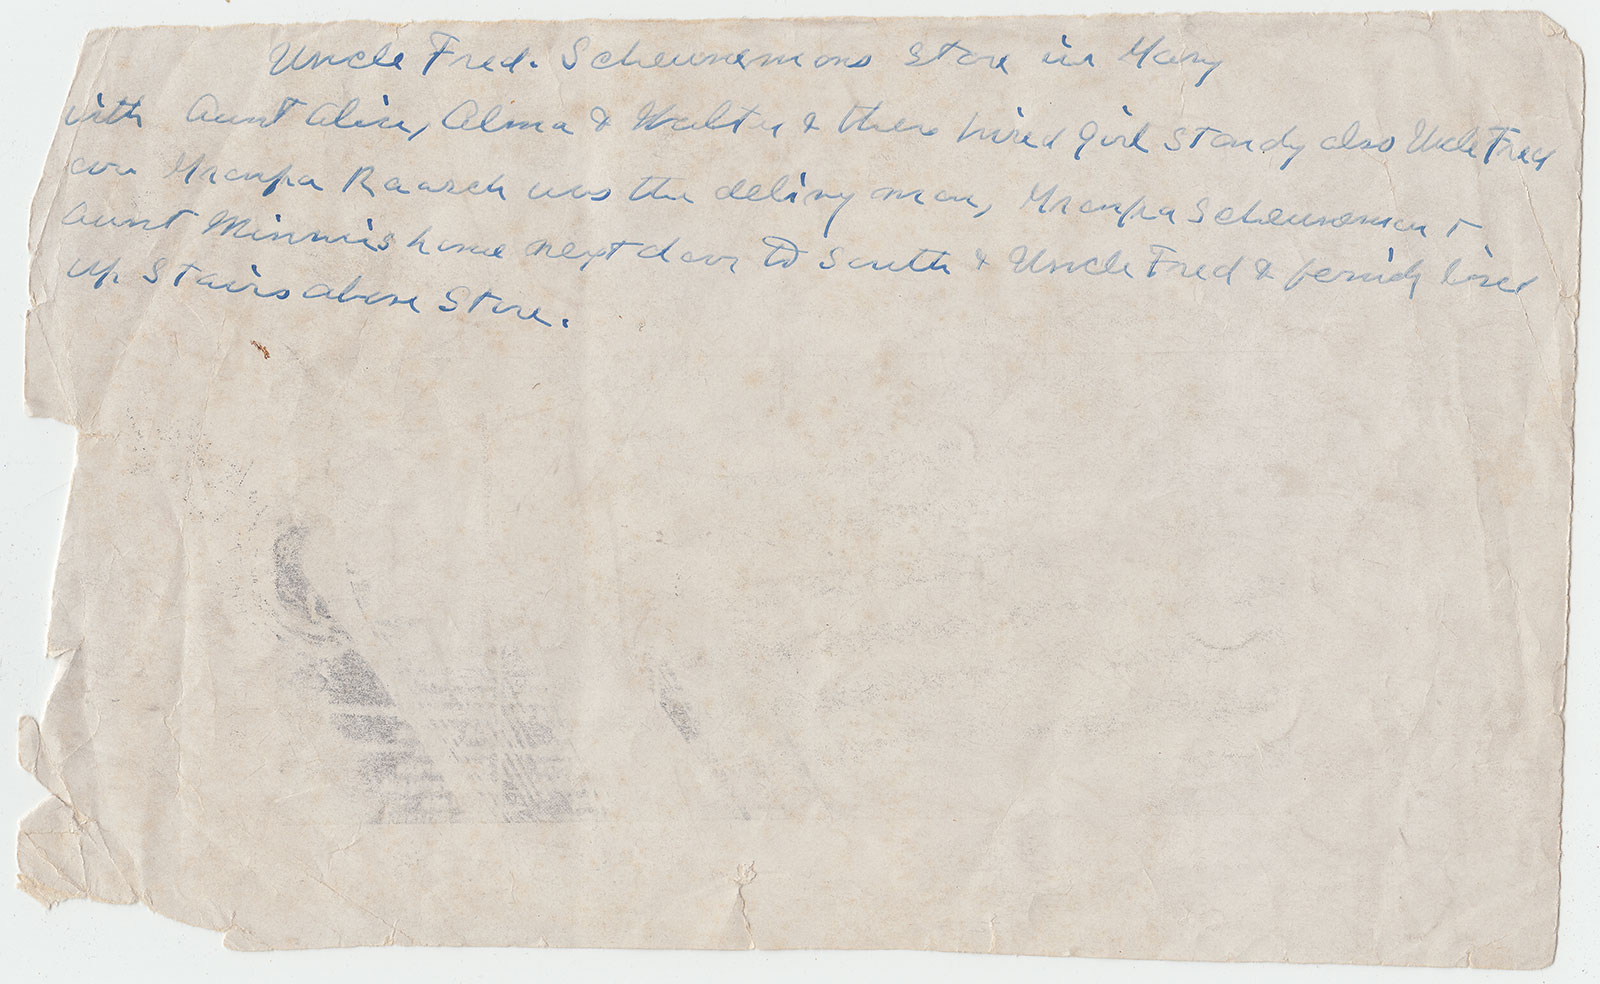 Uncle Fred. Scheunemons Store in Mary
with Aunt Alice, Alma & Walter & there hired girl standy also Uncle Fred
our Granpa Raasch was the delivry man, Granpa Scheuneman &
Aunt Minnies home next door to South & Uncle Fred & family lived
up Stairs above Store.